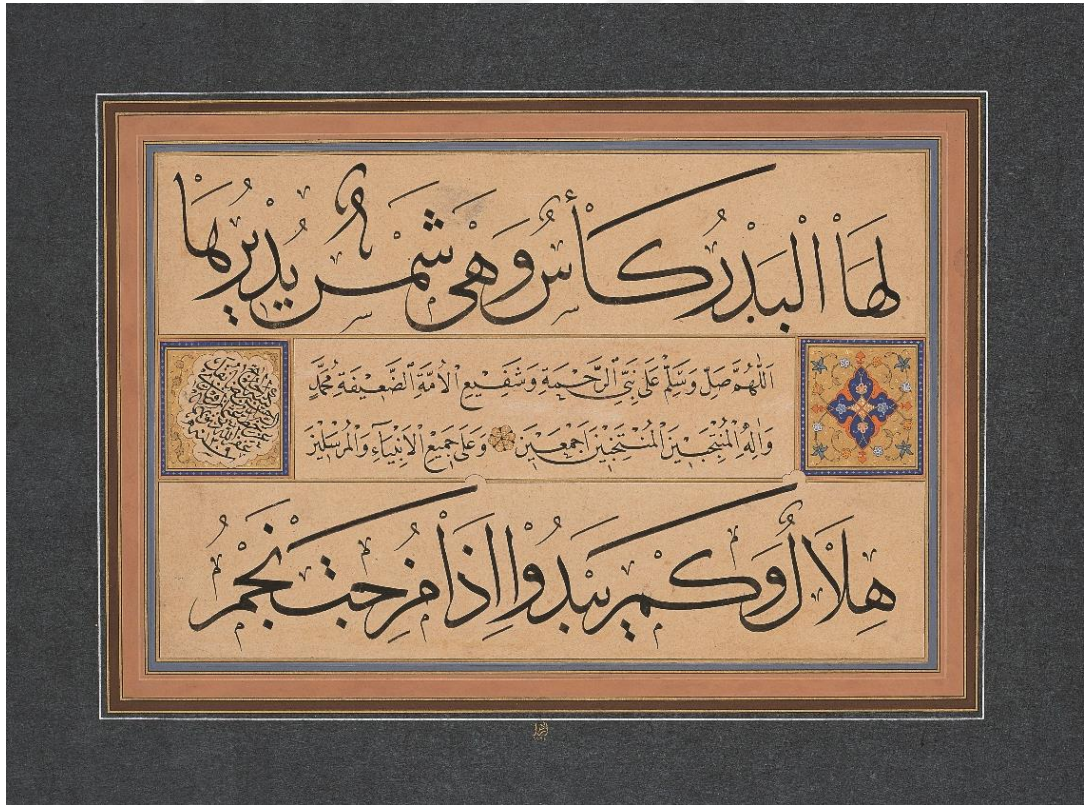 لَهَا الْبَدْرُ كَأْسٌ وَهْيَ شَمْسٌ يُدِيْرُهَا
اَللّٰهُمَّ صَلِّ وَسَلِّمْ عَلٰى نَبِيِّ الرَّحْمَةِ وَشَفِيْعِ الْاُمَّةِ الضَّعِيْفَةِ مُحَمَّدٍ
وَاٰلِهِ الْمُنْتَجَبِيْنَ الْمُنْتَخَبِيْنَ اَجْمَعِيْنَ وَعَلٰى جَمِيْعِ الْاَنْبِيَاءِ وَالْمُرْسَلِيْنَ
هِلَالٌ وَكَمْ يَبْدُوا اِذَا مُزِجَتْ نَجْمُ